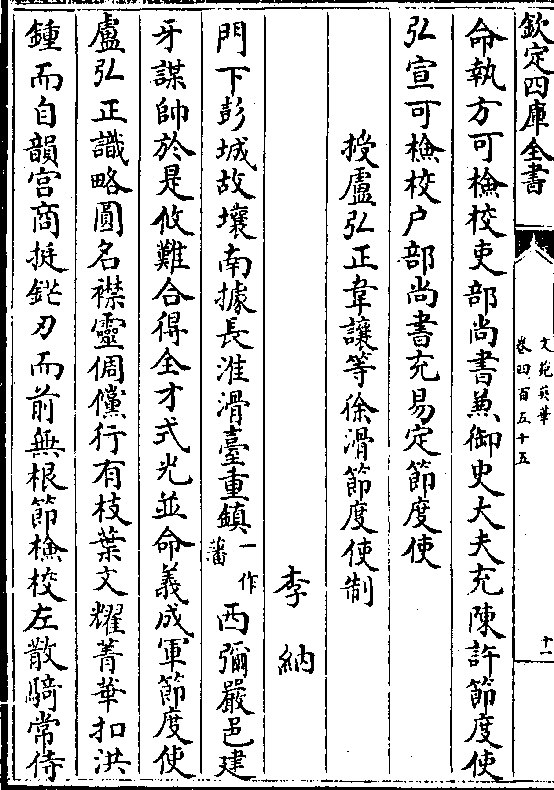 欽定四庫全書
文苑英華
卷四百五十五
十一
命執方可檢校吏部尚書兼御史大夫充陳許節度使
弘宣可檢校户部尚書充易定節度使
授盧弘正韋讓等徐滑節度使制
李納
門下彭城故壤南據長淮滑臺重鎮一作藩西彌嚴邑建
牙謀帥於是攸難合得全才式光並命義成軍節度使
盧弘正識略圓名襟靈倜儻行有枝葉文耀菁華扣洪
鍾而自韻宫商挺鋩刃而前無根節檢校左散騎常侍